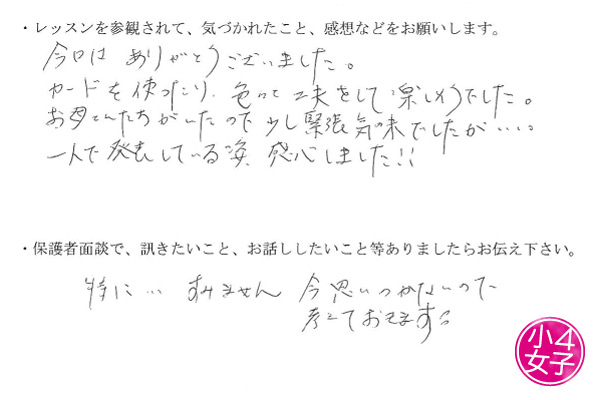 ・レッスンを参観されて、気づかれたこと、感想などをお願いします。
今日は ありがとうございました。
カードを使ったり、色々と工夫をして楽しそうでした。
お母さんたちがいたので少し緊張気味でしたが…
一人で発表している姿、感心しました!!
・保護者面談で、訊きたいこと、お話ししたいこと等ありましたらお伝え下さい。
特に… すみません 今思いつかないので
考えておきます。
小4
女子